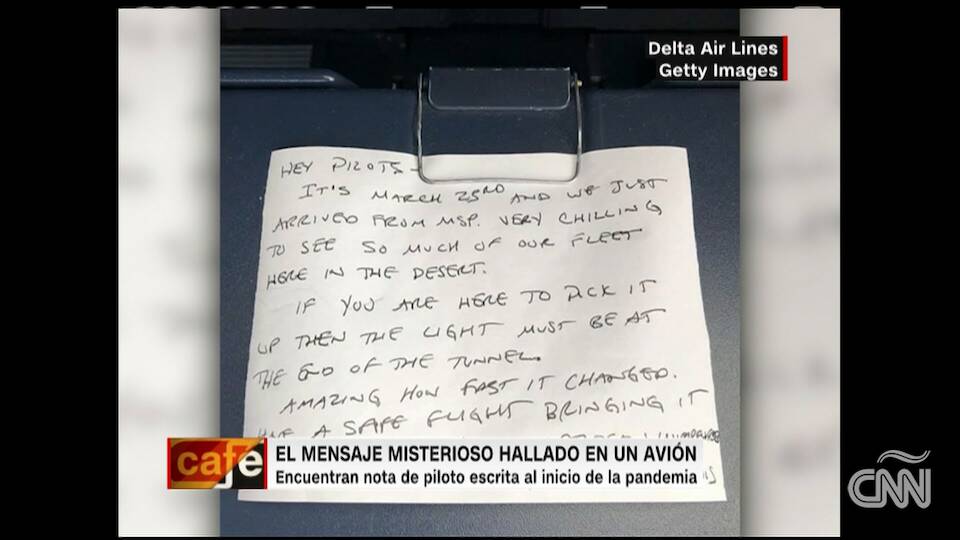 Delta Air Lines
Getty Images
HEY PILOTS-
IT'S MARCH 23RD AND WE JUST
ARRIVED FROM MSP. VERY CHILLING
TO SEE SO MUCH OF OUR FLEET
HERE IN THE DESERT.
IF YOU ARE HERE TO PICK IT
UP THEN THE LIGHT MUST BE AT
THE END OF THE TUNNEL.
AMAZING HOW FAST IT CHANGED.
HAVE A SAFE FLIGHT BRINGING IT
café
EL MENSAJE MISTERIOSO HALLADO EN UN AVIÓN
Encuentran nota de piloto escrita al inicio de la pandemia
CNN
ñ